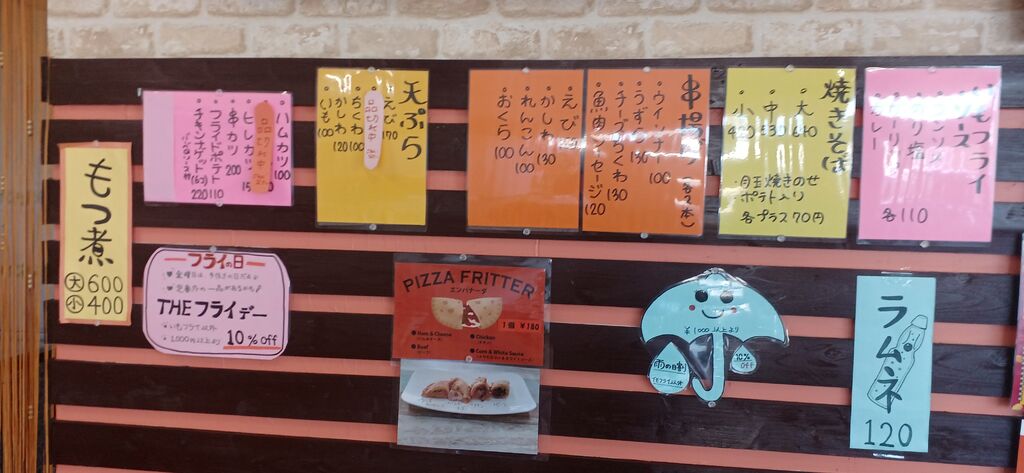 もつ煮
大600
小400
ハムカツ100
品切中
ヒレカツ
串カツ 200
フライドポテト 110
チキンナゲット(6コ) 220
天ぷら
えび 170
品切中
ちくわ
かしわ 120
いも 100
串揚げ(各2本)
ウインナー 100
うずら 130
チーズちくわ 130
魚肉ソーセージ 120
えび
かしわ 130
れんこん 100
おくら 100
焼きそば
大 640
中 530
小
・目玉焼きのせ
ポテト入り
各プラス70円
いもフライ
ソース
カレー
各110
フライの日
THEフライデー
・いもフライ以外
1,000円以上より
10%off
PIZZA FRITTER
エンパナーダ
1個 ¥180
Ham & Cheese
Beef
Chicken
Corn & White Sauce
¥1,000以上より
雨の日割
THEフライ以外
10%off
ラムネ
120